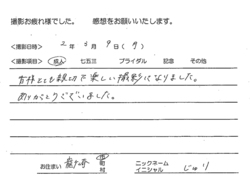 撮影お疲れ様でした。 感想をお願いいたします。
<撮影日時> 2年3月9日(月)
<撮影項目> 成人 七五三 ブライダル 記念 その他
とても親切で楽しい撮影になりました。
ありがとうございました。
お住まい 町 村 ニックネーム イニシャル じゅり